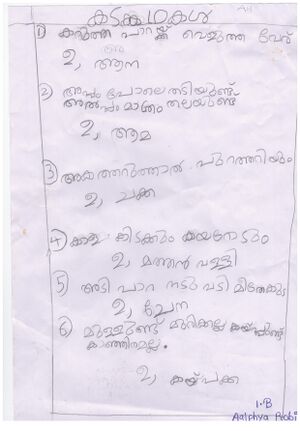 കടങ്കഥകൾ
1) കറുത്ത പാറയ്ക്ക് വെളുത്ത വേര്
ഉ, ആന
2) അപ്പം പോലെ തടിയുണ്ട്
അൽപ്പം മാത്രം തലയുണ്ട്
ഉ, ആമ
3) അകത്തറുത്താൽ പുറത്തറിയും
ഉ, ചക്ക
4) കാള കിടക്കും കയറോടും
ഉ, മത്തൻ വള്ളി
5) അടി പാറ നടു വടി മീതെ കുട
ഉ, ചേന
6) മുള്ളുണ്ട് മുരിക്കല്ല കയ്പ്പുണ്ട്
കാഞ്ഞിരമല്ല.
ഉ, കയ്പക്ക
1.B
Aalphya